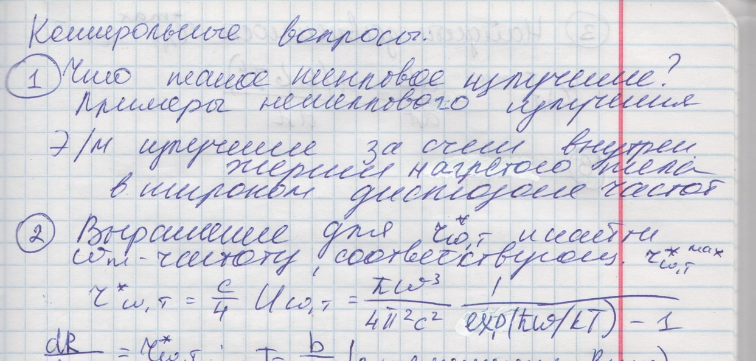 Контрольные вопросы.
① Что такое тепловое излучение?
Примеры нетеплового излучения
Э/м излучение за счет внутрен
энергии нагретого тела
в широком диапазоне частот
② Выражение для r*ω,T и найти
ωm - частоту, соответствующ. r*ω,T max
r*ω,T = c/4 Uω,T = ħω³/4π²c² 1/exp(ħω/kT) - 1
dR = r*ω,T ; T = b